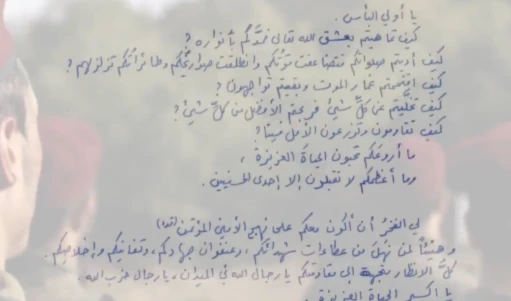 يا أولي البأس.
كيف تماهيتم بعشق الله تعالى فمدَّكم بأنواره؟
كيف أديتم صلواتكم فتضاعفت قوتكم وانطلقت صواريخكم وطائراتكم تزلزلهم؟
كيف اقتحمتم غمار الموت وبقيتم تواجهون؟
كيف تخلّيتم عن كلِّ شيئ فربحتم الأفضل من كلِّ شيئ؟
كيف تقاومون وتزرعون الأمل
ما أروعكم تحبون الحياة العزيزة،
وما أعظمكم لا تقبلون إلا إحدى الحسنيين.
لي الفخرُ أن أكون معكم على نهج الأمين المؤتمن (قده)
وهنيئاً لمن نهلَ من عطاءات شهدائكم، وعنفوان جهادكم، وتفانيكم وإخلاصكم.
كلُّ الأنظار متجهة إلى مقاومتكم يا رجال الله في الميدان، يا رجال حزب الله.
يا الحياة العزيزة